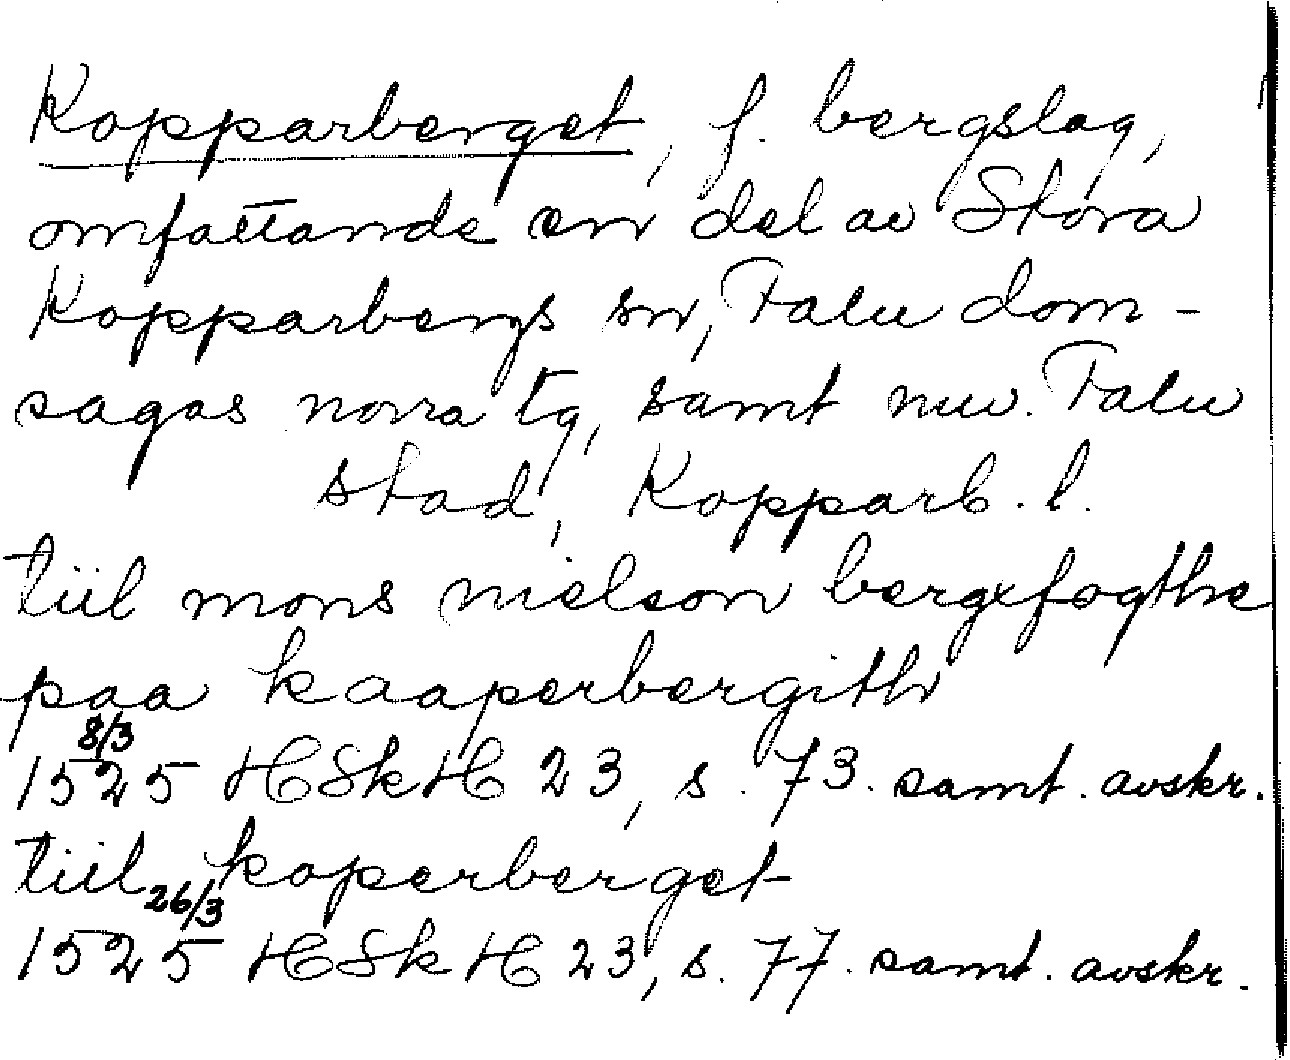 Kopparberget, f. bergslag,
omfattande en del av Stora
Kopparbergs sn, Falu dom-
sagas norra tg, samt nuv. Falu
stad, Kopparb. l.
tiil mons nielson bergxfogthe
paa kaaperbergith
8/3
1525 HSkH 23, s. 73. samt. avskr.
tiil koperberget
26/3
1525 HSkH 23, s. 77. samt. avskr.